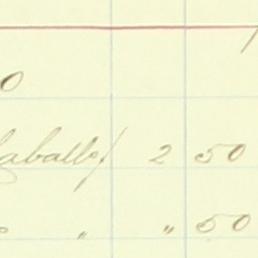 0
caballo/ 2 50
" " 50